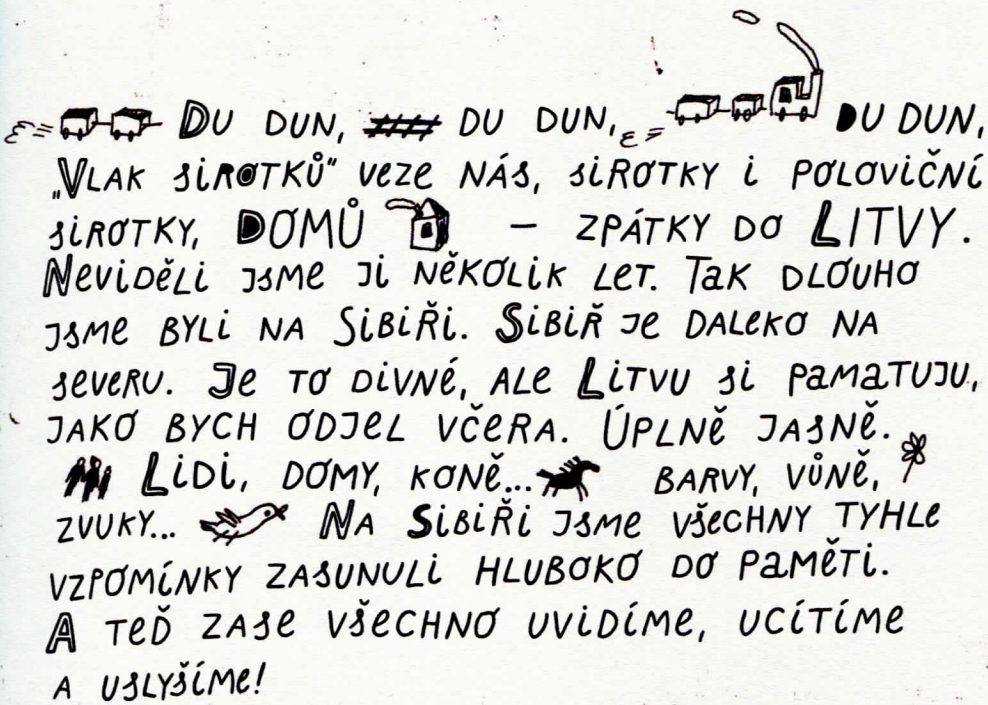 Du dun, du dun, du dun,
„Vlak sirotků“ veze nás, sirotky i poloviční
sirotky, domů – zpátky do Litvy.
Neviděli jsme ji několik let. Tak dlouho
jsme byli na Sibiři. Sibiř je daleko na
severu. Je to divné, ale Litvu si pamatuju,
jako bych odjel včera. Úplně jasně.
Lidi, domy, koně... barvy, vůně,
zvuky... Na Sibiři jsme všechny tyhle
vzpomínky zasunuli hluboko do paměti.
A teď zase všechno uvidíme, ucítíme
a uslyšíme!